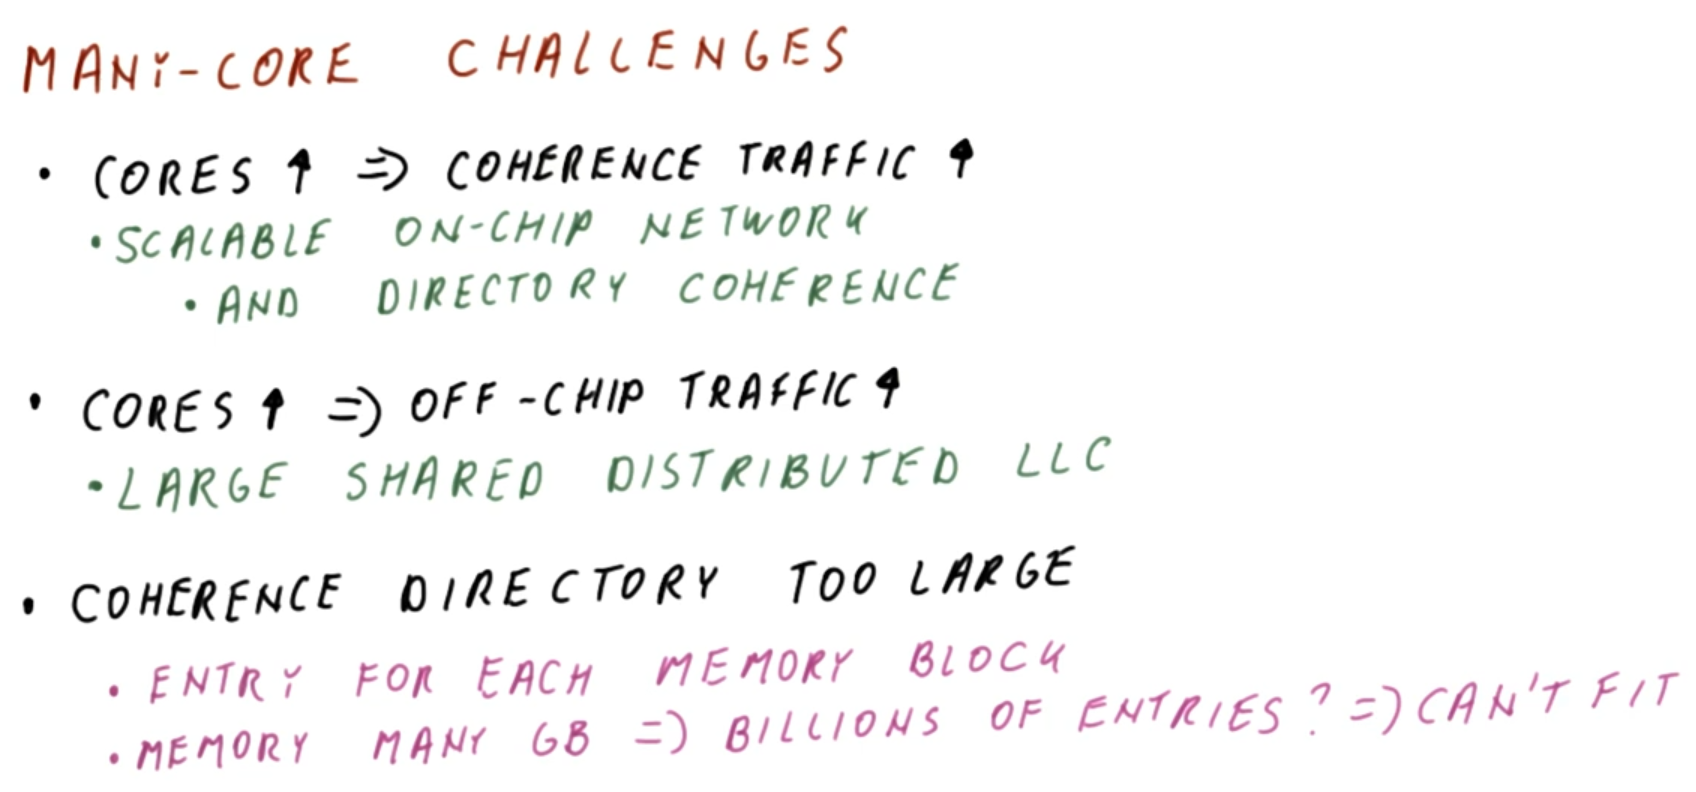 MANY-CORE CHALLENGES
• CORES ↑ => COHERENCE TRAFFIC ↑
• SCALABLE ON-CHIP NETWORK
• AND DIRECTORY COHERENCE
• CORES ↑ => OFF-CHIP TRAFFIC ↑
• LARGE SHARED DISTRIBUTED LLC
• COHERENCE DIRECTORY TOO LARGE
• ENTRY FOR EACH MEMORY BLOCK
• MEMORY MANY GB => BILLIONS OF ENTRIES? => CAN'T FIT